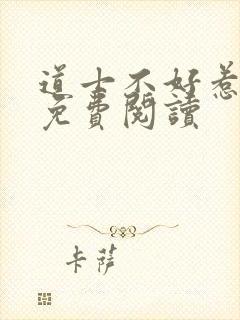 道士不好惹
免費閱讀
卡薩